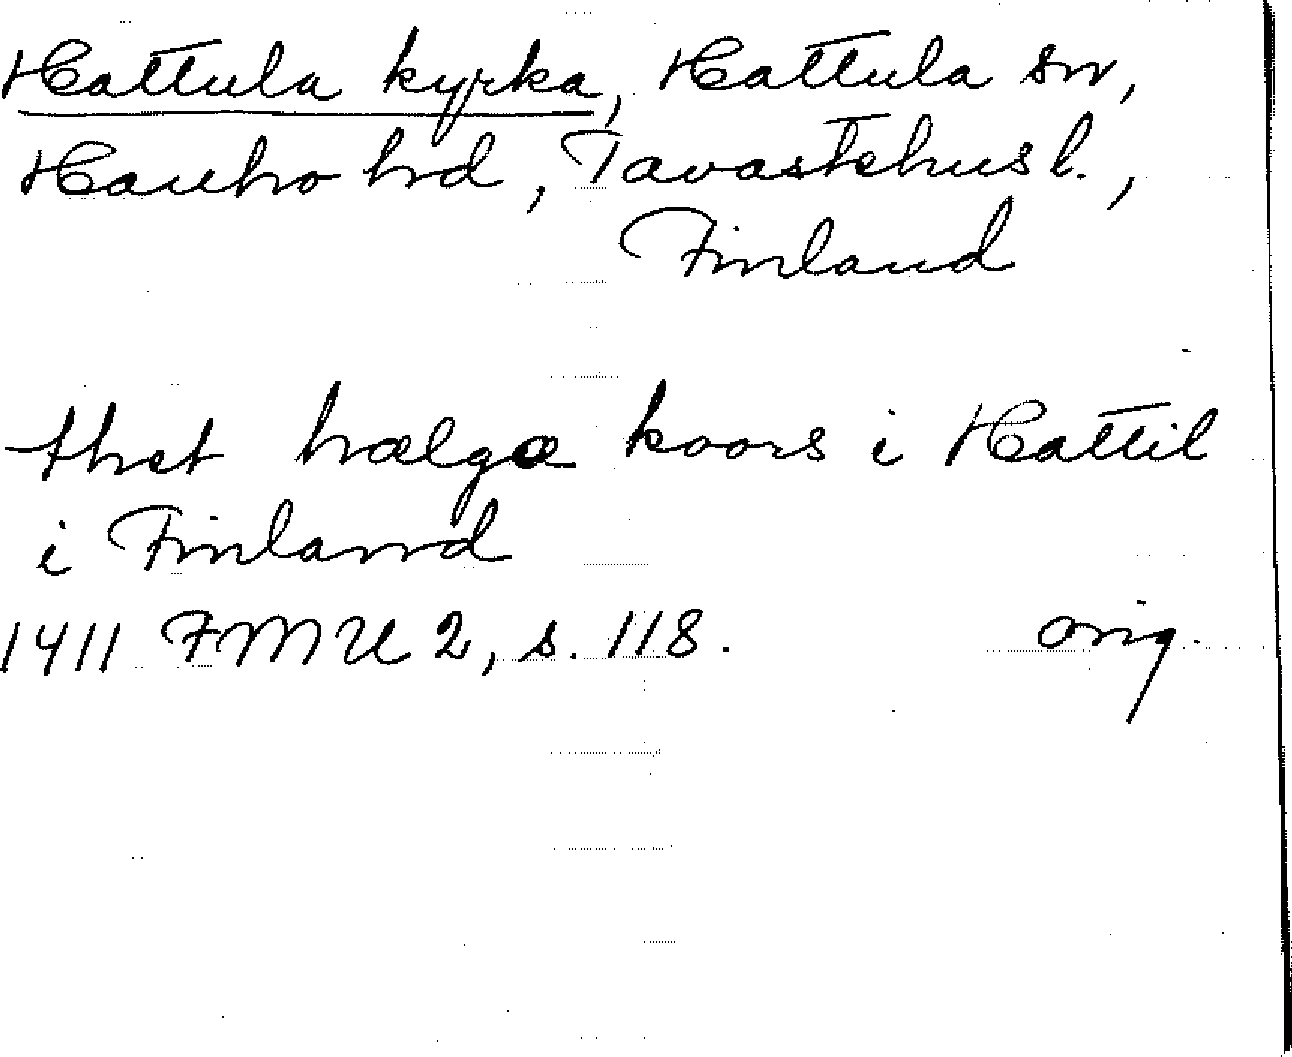 Hattula kyrka, Hattula sn,
Hauho hd, Tavastehus l.,
Finland
thet hælgæ koors i Hattil
i Finlannd
1411 FMU 2, s. 118. orig.